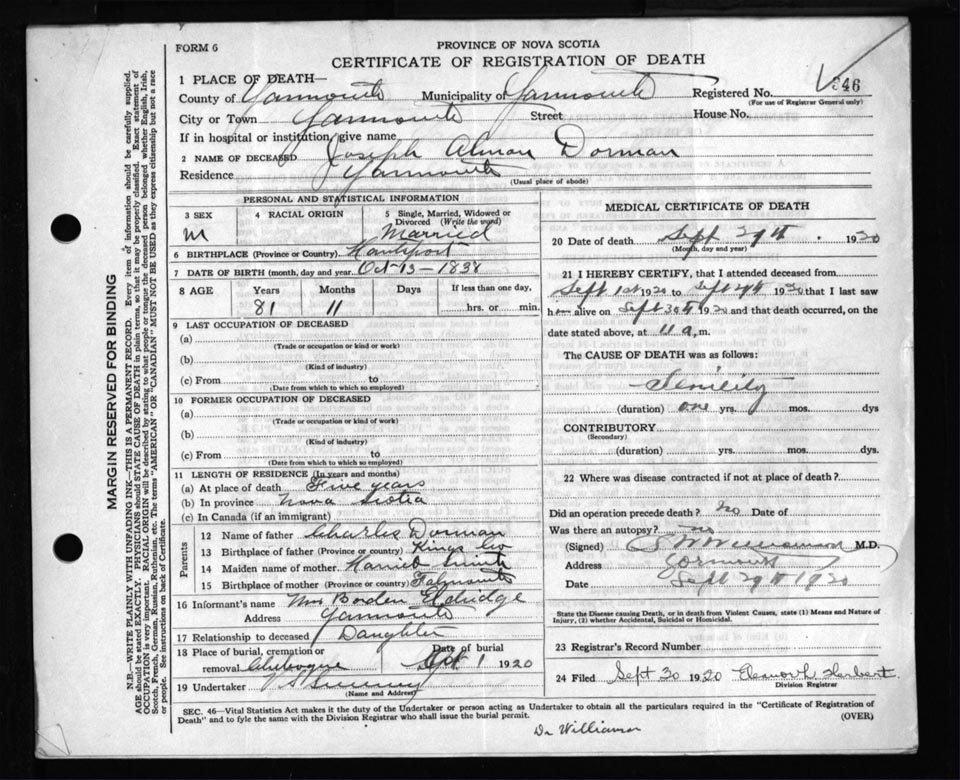 FORM 6
PROVINCE OF NOVA SCOTIA
CERTIFICATE OF REGISTRATION OF DEATH
1 PLACE OF DEATH—
County of Yarmouth Municipality of Yarmouth Registered No. 346
(For use of Registrar General only)
City or Town Yarmouth Street House No.
If in hospital or institution, give name
2 NAME OF DECEASED Joseph Alman Dorman
Residence Yarmouth
(Usual place of abode)
PERSONAL AND STATISTICAL INFORMATION
3 SEX 4 RACIAL ORIGIN 5 Single, Married, Widowed or
Divorced (Write the word)
M Married
6 BIRTHPLACE (Province or Country) Hantsport
7 DATE OF BIRTH (month, day and year) Oct-13-1838
8 AGE Years Months Days If less than one day,
81 11 hrs. or min.
9 LAST OCCUPATION OF DECEASED
(a)
(Trade or occupation or kind or work)
(b)
(Kind of industry)
(c) From to
(Date from which to which so employed)
10 FORMER OCCUPATION OF DECEASED
(a)
(Trade or occupation or kind of work)
(b)
(Kind of industry)
(c) From to
(Date from which to which so employed)
11 LENGTH OF RESIDENCE (In years and months)
(a) At place of death Five years
(b) In province Nova Scotia
(c) In Canada (if an immigrant)
Parents
12 Name of father Charles Dorman
13 Birthplace of father (Province or country) Kings Co
14 Maiden name of mother Harried Smith
15 Birthplace of mother (Province or country) Falmouth
16 Informant's name Mrs Borden Eldridge
Address Yarmouth
17 Relationship to deceased Daughter
18 Place of burial, cremation or Date of burial
removal Chebogue Oct 1 1920
19 Undertaker
(Name and Address)
MEDICAL CERTIFICATE OF DEATH
20 Date of death Sept 29th 1920
(Month, day and year)
21 I HEREBY CERTIFY, that I attended deceased from
Sept 1st 1920 to Sept 29th 1920 that I last saw
h alive on Sept 1920 and that death occurred, on the
date stated above, at 11 a.m.
The CAUSE OF DEATH was as follows:
Senility
(duration) one yrs. mos. dys
CONTRIBUTORY
(Secondary)
(duration) yrs. mos. dys.
22 Where was disease contracted if not at place of death?
Did an operation precede death? no Date of
Was there an autopsy? no
(Signed) M.D.
Address Yarmouth
Date Sept 29th 1920
State the Disease causing Death, or in death from Violent Causes, state (1) Means and Nature of
Injury, (2) whether Accidental, Suicidal or Homicidal.
23 Registrar's Record Number
24 Filed Sept 30 1920 Elenor L. Herbert
Division Registrar
SEC. 46—Vital Statistics Act makes it the duty of the Undertaker or person acting as Undertaker to obtain all the particulars required in the "Certificate of Registration of
Death" and to fyle the same with the Division Registrar who shall issue the burial permit. (OVER)
Dr Williamson
MARGIN RESERVED FOR BINDING
N.B.—WRITE PLAINLY WITH UNFADING INK—THIS IS A PERMANENT RECORD. Every item of information should be carefully supplied.
AGE should be stated EXACTLY. PHYSICIANS should STATE CAUSE OF DEATH in plain terms, so that it may be properly classified. Exact statement of
OCCUPATION is very important. RACIAL ORIGIN will be described by stating to what people or tongue the deceased person belonged whether English, Irish,
Scotch, French, German, Russian, Ruthenian, etc. The terms "AMERICAN" OR "CANADIAN" MUST NOT BE USED as they express citizenship but not a race
or people. See instructions on back of Certificate.